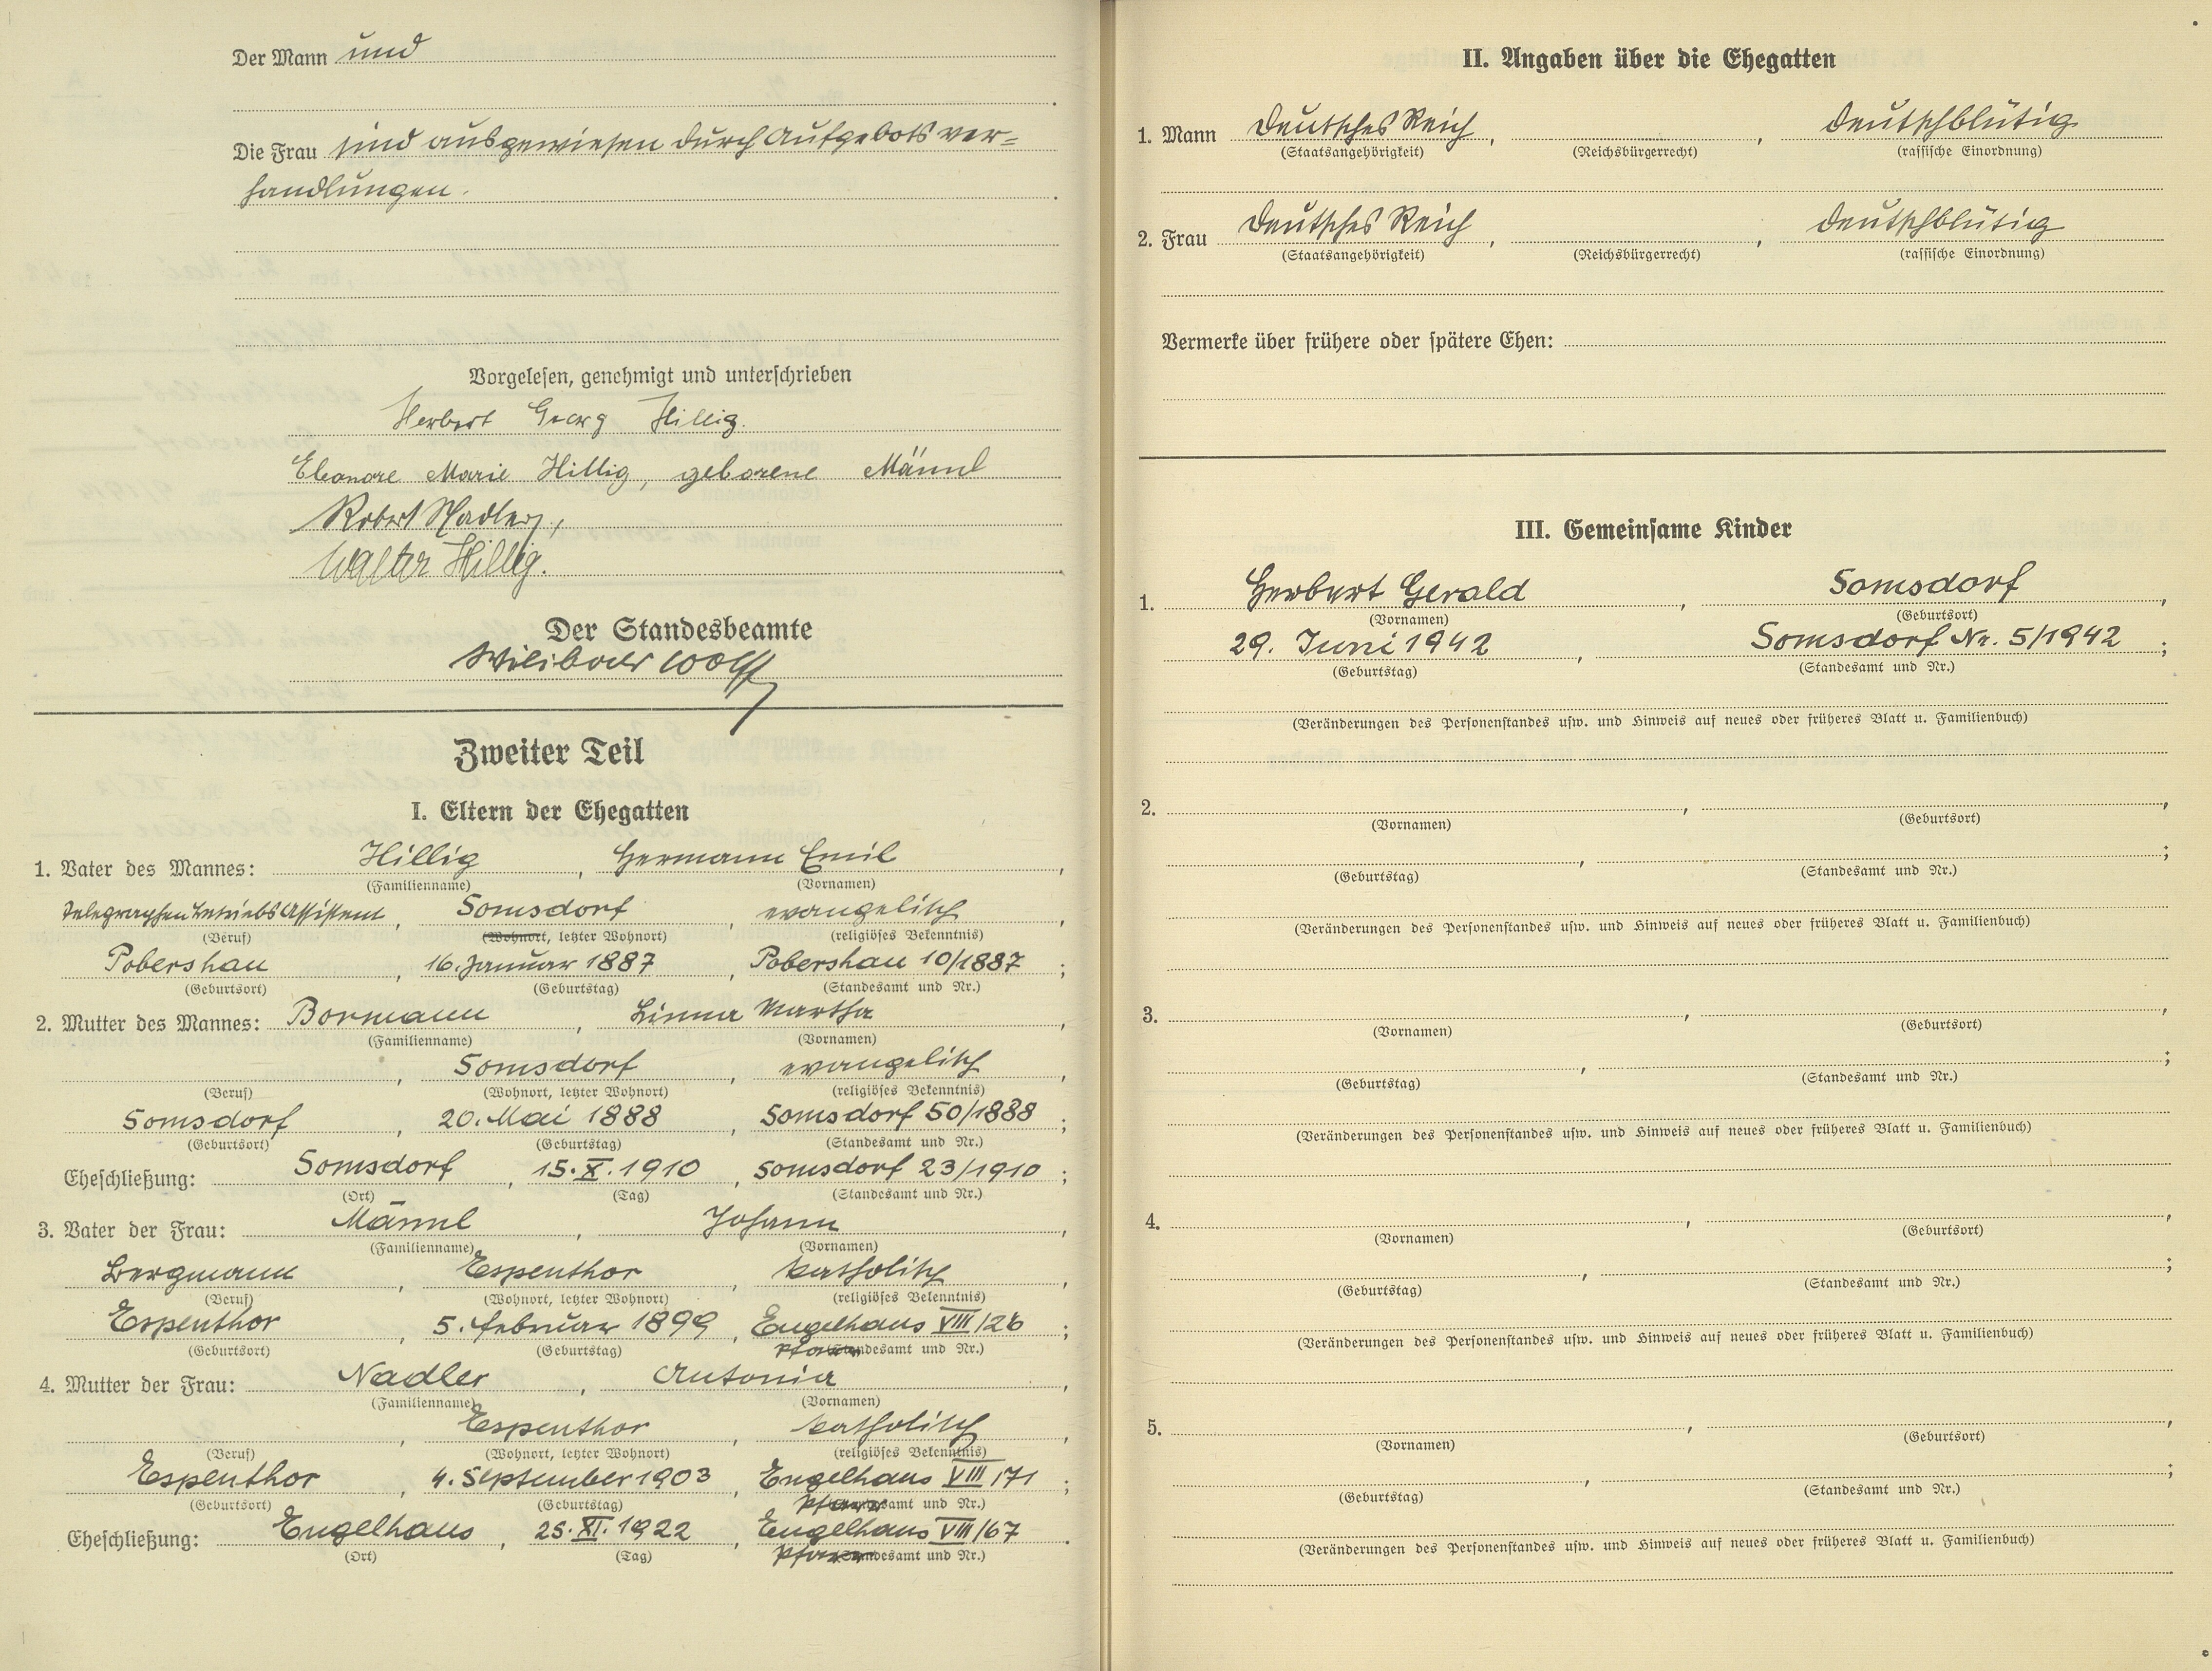 Der Mann und
Die Frau sind ausgewiesen durch Aufgebotsver=
handlungen.
Vorgelesen, genehmigt und unterschrieben
Herbert Georg Hillig.
Eleonore Marie Hillig, geborene Männl
Robert Nadler,
Walter Hillig.
Der Standesbeamte
Wolff
Zweiter Teil
I. Eltern der Ehegatten
1. Vater des Mannes: Hillig, Hermann Emil,
(Familienname) (Vornamen)
Telegraphenbetriebsassistent, Somsdorf evangelisch,
(Beruf) (Wohnort, letzter Wohnort) (religiöses Bekenntnis)
Pobershau, 16. Januar 1887, Pobershau 10/1887;
(Geburtsort) (Geburtstag) (Standesamt und Nr.)
2. Mutter des Mannes: Bormann, Linna Martha,
(Familienname) (Vornamen)
, Somsdorf, evangelisch,
(Beruf) (Wohnort, letzter Wohnort) (religiöses Bekenntnis)
Somsdorf, 20. Mai 1888, Somsdorf 50/1888;
(Geburtsort) (Geburtstag) (Standesamt und Nr.)
Eheschließung: Somsdorf, 15. X. 1910, Somsdorf 23/1910;
(Ort) (Tag) (Standesamt und Nr.)
3. Vater der Frau: Männl, Johann,
(Familienname) (Vornamen)
Bergmann, Espenthor, katholisch,
(Beruf) (Wohnort, letzter Wohnort) (religiöses Bekenntnis)
Espenthor, 5. Februar 1899, Engelhaus VIII/26;
(Geburtsort) (Geburtstag) Pfarramt und Nr.)
4. Mutter der Frau: Nadler, Antonia,
(Familienname) (Vornamen)
, Espenthor, katholisch,
(Beruf) (Wohnort, letzter Wohnort) (religiöses Bekenntnis)
Espenthor, 4. September 1903, Engelhaus VIII/71;
(Geburtsort) (Geburtstag) Pfarramt und Nr.)
Eheschließung: Engelhaus, 25. XI. 1922, Engelhaus VIII/67.
(Ort) (Tag) Pfarramt und Nr.)
II. Angaben über die Ehegatten
1. Mann Deutsches Reich, , deutschblütig
(Staatsangehörigkeit) (Reichsbürgerrecht) (rassische Einordnung)
2. Frau Deutsches Reich, , deutschblütig
(Staatsangehörigkeit) (Reichsbürgerrecht) (rassische Einordnung)
Vermerke über frühere oder spätere Ehen:
III. Gemeinsame Kinder
1. Herbert Gerald, Somsdorf,
(Vornamen) (Geburtsort)
29. Juni 1942, Somsdorf Nr. 5/1942;
(Geburtstag) (Standesamt und Nr.)
(Veränderungen des Personenstandes usw. und Hinweis auf neues oder früheres Blatt u. Familienbuch)
2. , ,
(Vornamen) (Geburtsort)
, ;
(Geburtstag) (Standesamt und Nr.)
(Veränderungen des Personenstandes usw. und Hinweis auf neues oder früheres Blatt u. Familienbuch)
3. , ,
(Vornamen) (Geburtsort)
, ;
(Geburtstag) (Standesamt und Nr.)
(Veränderungen des Personenstandes usw. und Hinweis auf neues oder früheres Blatt u. Familienbuch)
4. , ,
(Vornamen) (Geburtsort)
, ;
(Geburtstag) (Standesamt und Nr.)
(Veränderungen des Personenstandes usw. und Hinweis auf neues oder früheres Blatt u. Familienbuch)
5. , ,
(Vornamen) (Geburtsort)
, ;
(Geburtstag) (Standesamt und Nr.)
(Veränderungen des Personenstandes usw. und Hinweis auf neues oder früheres Blatt u. Familienbuch)